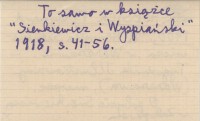 To samo w książce
"Sienkiewicz i Wyspiański"
1918, s. 41-56.